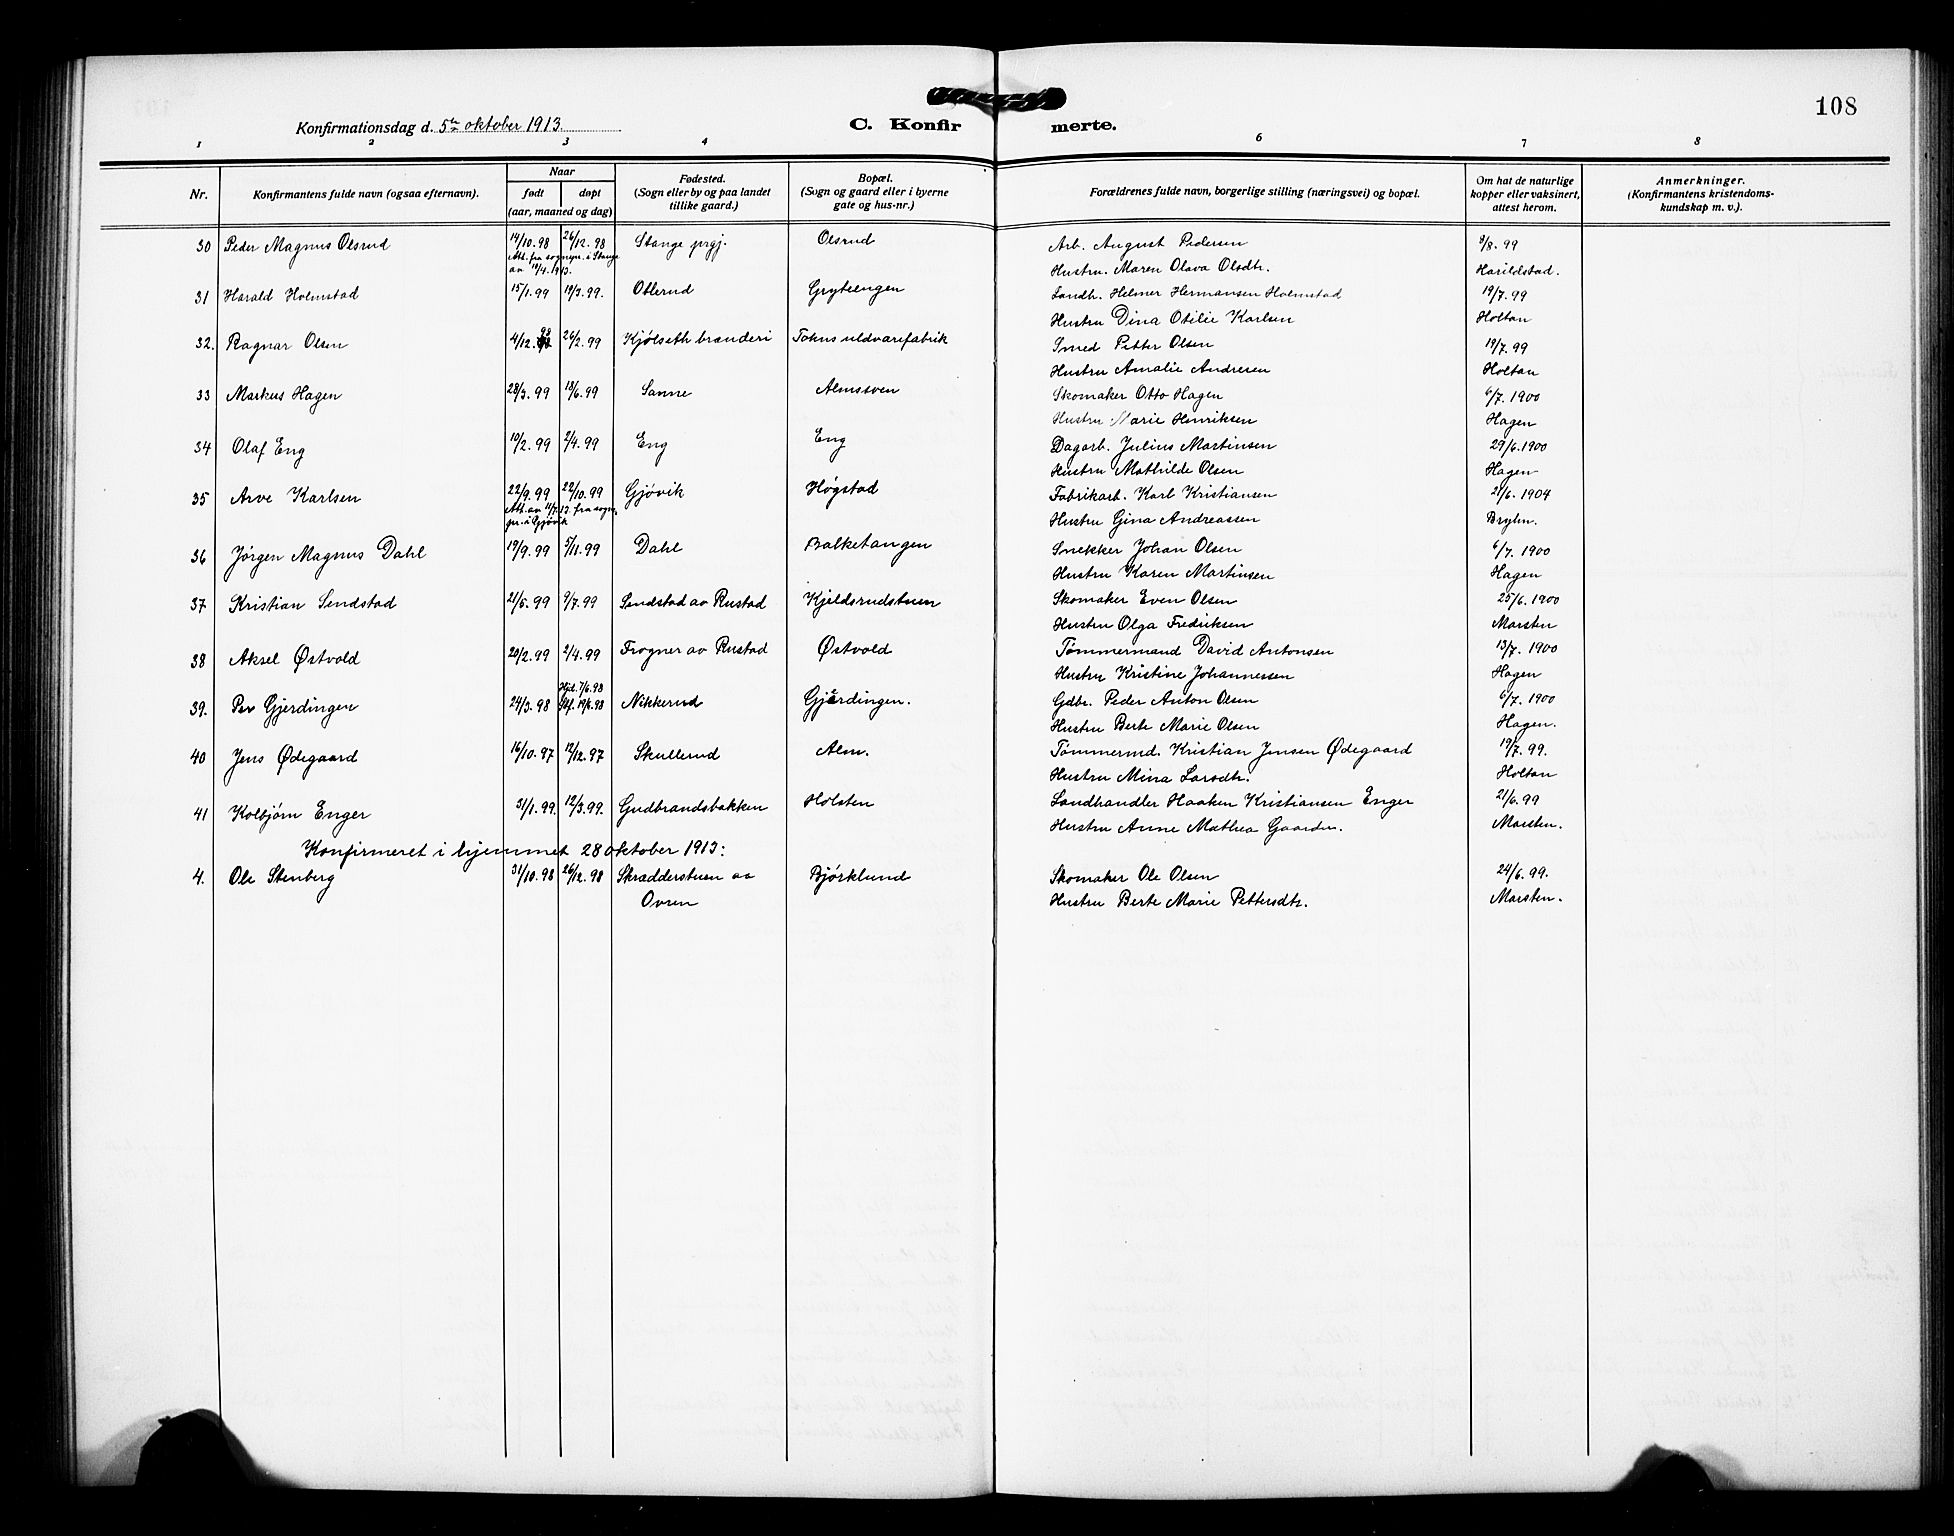 108
Konfirmationsdag d. 5te oktober 1913.
C. Konfirmerte.
1 2 3 4 6 7 8
Nr. Konfirmantens fulde navn (ogsaa efternavn). Naar født døpt (aar, maaned og dag) Fødested. (Sogn eller by og paa landet tillike gaard.) Bopæl. (Sogn og gaard eller i byerne gate og hus-nr.) Forældrenes fulde navn, borgerlige stilling (næringsvei) og bopæl. Om hat de naturlige kopper eller vaksinert, attest herom. Anmerkninger. (Konfirmantens kristendomskundskap m. v.).
30 Peder Magnus Olsrud 14/10. 98 26/12. 98 Stange prgj. Olsrud Arb. August Pedersen 9/8. 99
Att. fra sognepr. i Stange av 18/4. 1913. Hustru. Maren Olava Olsdtr. Harildstad.
31 Harald Holmstad 15/1. 99 19/3. 99. Ollerud Gryteengen Landh. Helmer Hermansen Holmstad 19/7. 99
Hustru Dina Otilie Karlsen Holtan
32. Ragnar Olsen 4/12. 98 26/2. 99 Kjølseth brænderi Tokns uldvarefabrik Smed Petter Olsen 19/7. 99
Hustru Amalie Andresen Holtan
33 Markus Hagen 28/3. 99 18/6. 99 Sanne Almssven Skomaker Otto Hagen 6/7. 1900
Hustru Marie Henriksen Hagen
34 Olaf Eng 10/2. 99 2/4. 99 Eng Eng Dagarb. Julius Martinsen 29/6. 1900
Hustru Mathilde Olsen Hagen
35 Arve Karlsen 22/9. 99 22/10. 99 Gjøvik Høgstad Fabrikarb. Karl Kristiansen 21/6. 1904
Att. av 11/7. 13. fra sognepr. i Gjøvik Hustru Gina Andreassen Bryhn.
36 Jørgen Magnus Dahl 19/9. 99 5/11. 99 Dahl Balketangen Snekker Johan Olsen 6/7. 1900
Hustru Karen Martinsen Hagen
37 Kristian Sendstad 21/5. 99 9/7. 99 Sendstad av Rustad Kjeldsrudstuen Skomaker Even Olsen 25/6. 1900
Hustru Olga Fredriksen Marsten
38 Aksel Østvold 20/2. 99 2/4. 99 Frogner av Rustad Østvold Tømmermand David Antonsen 13/7. 1900
Hustru Kristine Johannessen Hagen
39. Per Gjerdingen 24/3. 98 Hjd. 7/6. 98 Stf. 19/6. 98 Nikkerud Gjerdingen. Gdbr. Peder Anton Olsen 6/7. 1900
Hustru Berte Marie Olsen Hagen.
40 Jens Ødegaard 16/10. 97 12/12. 97 Skullerud Alm. Tømmermd. Kristian Jensen Ødegaard 19/7. 99.
Hustru Mina Larsdtr. Holtan
41 Kolbjørn Enger 31/1. 99. 12/3. 99. Gudbrandsbakken Holsten Landhandler Haaken Kristiansen Enger 21/6. 99
Hustru Anne Mathea Gaarder. Marsten.
Konfirmeret i hjemmet 28 oktober 1913:
4. Ole Stenberg 31/10. 98 26/12. 98 Skrædderstuen av Bjørklund Skomaker Ole Olsen 24/6. 99.
Ovren Hustru Berte Marie Pettersdtr. Marsten.